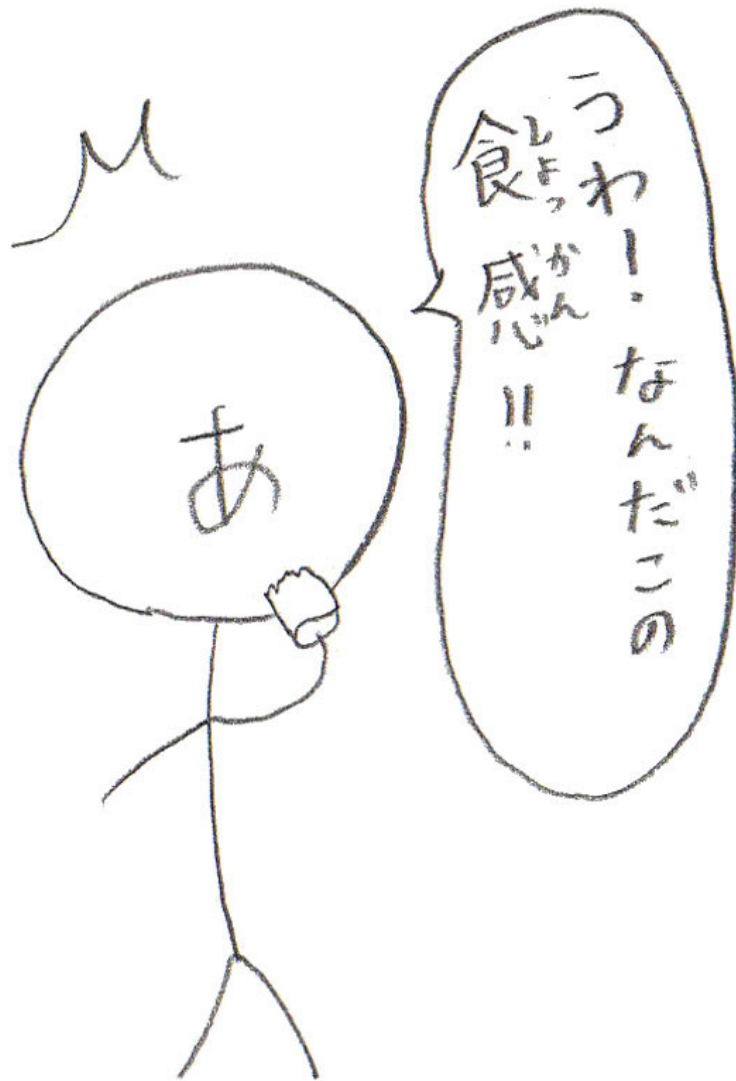 うわ！なんだこの
食感!!
しょっ
かん
あ